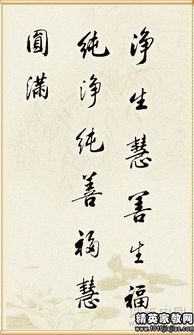 净生慧善生福
纯净纯善福慧
圆满
精英家教网
www.1010jiajiao.com